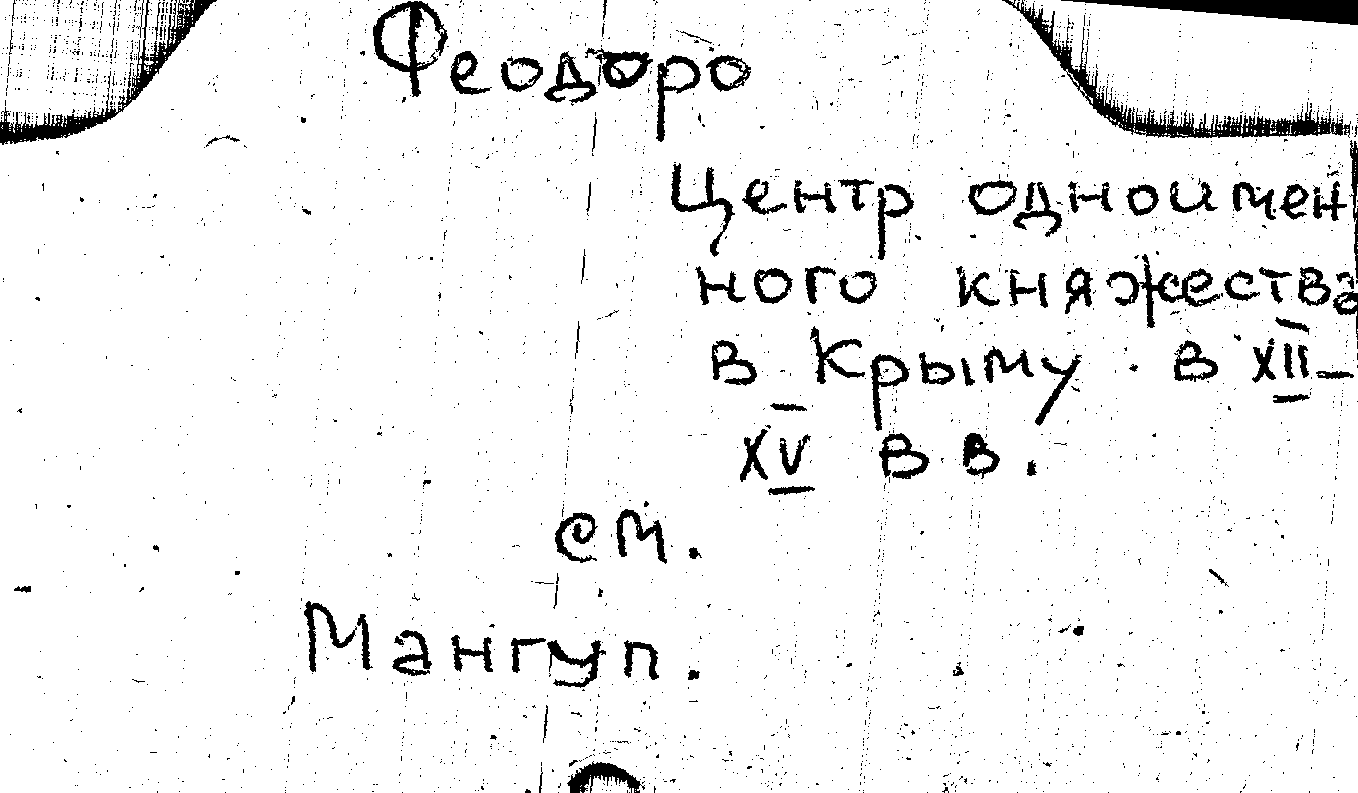 Феодоро
Центр одноимен
ного княжества
в Крыму в XII–
XV вв.
см.
Мангуп.